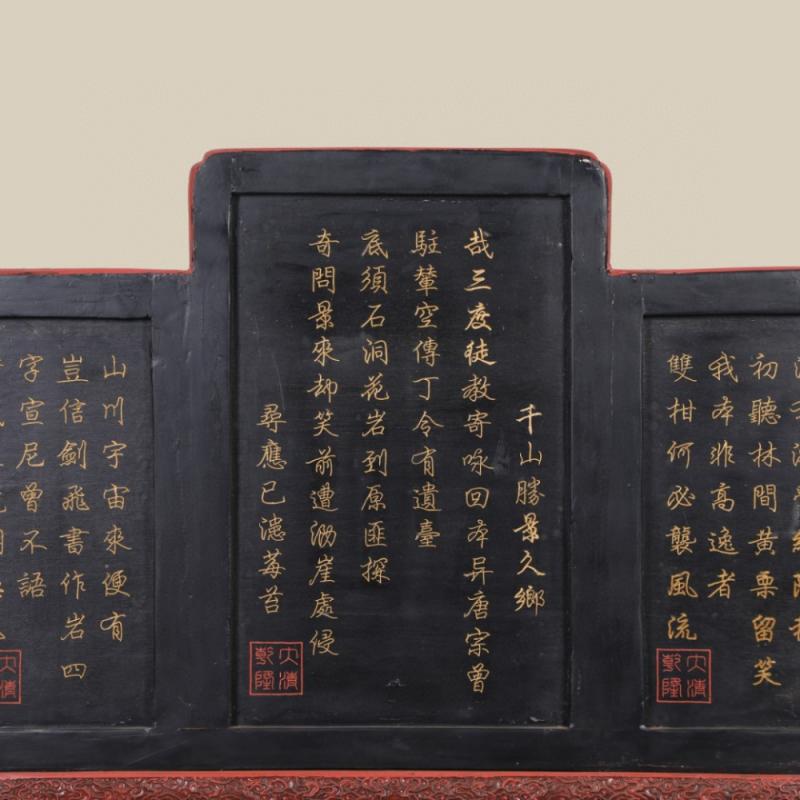 初聽林間黃栗留笑
我本非高逸者
雙柑何必襲風流
大清乾隆
千山勝景久鄉
哉三度徒教寄咏回本异唐宗曾
駐輦空傳丁令有遺臺
底須石洞花岩到原匪探
奇問景來却笑前遭泐崖處侵
尋應已濾莓苔
大清乾隆
山川宇宙來便有
豈信劍飛書作岩四
字宣尼曾不語
大清